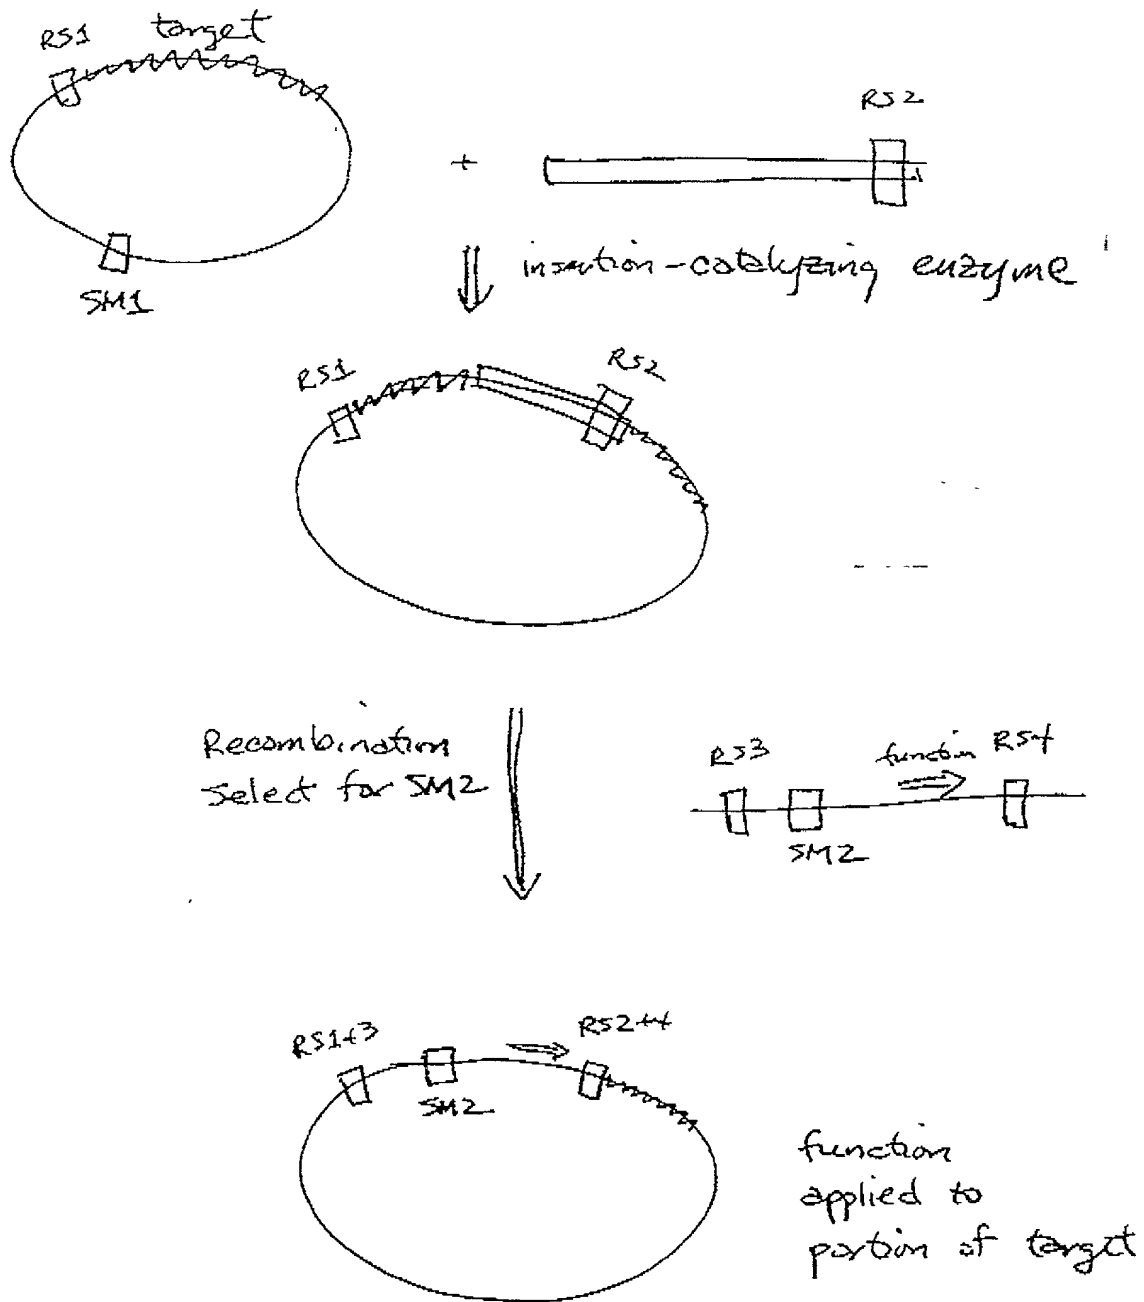 RS1 target
RS2
+
SM1
insertion-catalyzing enzyme
RS1
RS2
Recombination
Select for SM2
RS3
function
RS4
SM2
RS1+3
RS2+4
SM2
function
applied to
portion of target